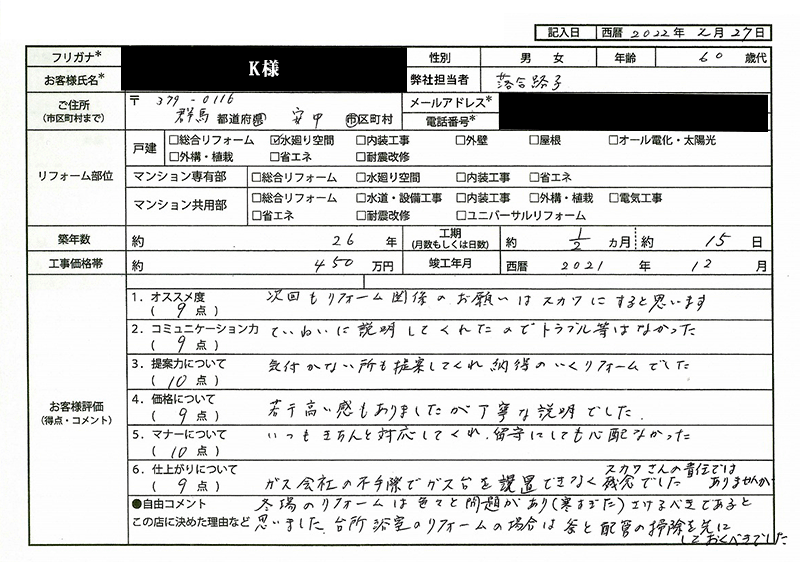 記入日 西暦 2022年 2月 27日
フリガナ* K様 性別 男 女 年齢 60 歳代
お客様氏名* 弊社担当者 落合路子
ご住所 (市区町村まで) 〒 379-0116 メールアドレス*
群馬 都道府県 安中 市区町村 電話番号*
リフォーム部位 戸建 □総合リフォーム ☑水廻り空間 □内装工事 □外壁 □屋根 □オール電化・太陽光
□外構・植栽 □省エネ □耐震改修
マンション専有部 □総合リフォーム □水廻り空間 □内装工事 □省エネ
マンション共用部 □総合リフォーム □水道・設備工事 □内装工事 □外構・植栽 □電気工事
□省エネ □耐震改修 □ユニバーサルリフォーム
築年数 約 26 年 工期 (月数もしくは日数) 約 1/2 カ月 約 15 日
工事価格帯 約 450 万円 竣工年月 西暦 2021 年 12 月
お客様評価 (得点・コメント)
1. オススメ度 ( 9 点 ) 次回もリフォーム関係のお願いはスカワにすると思います
2. コミュニケーション力 ( 9 点 ) ていねいに説明してくれたのでトラブル等はなかった
3. 提案力について ( 10 点 ) 気付かない所も提案してくれ納得のいくリフォームでした
4. 価格について ( 9 点 ) 若干高い感もありましたが丁寧な説明でした.
5. マナーについて ( 10 点 ) いつもきちんと対応してくれ、留守にしても心配なかった
6. 仕上がりについて ( 9 点 ) ガス会社の不手際でガス台を設置できなく残念でした スカワさんの責任ではありませんが
●自由コメント 冬場のリフォームは色々と問題があり(寒すぎた)さけるべきであると
この店に決めた理由など 思いました。台所浴室のリフォームの場合は 配管の掃除を先に
しておくべきでした